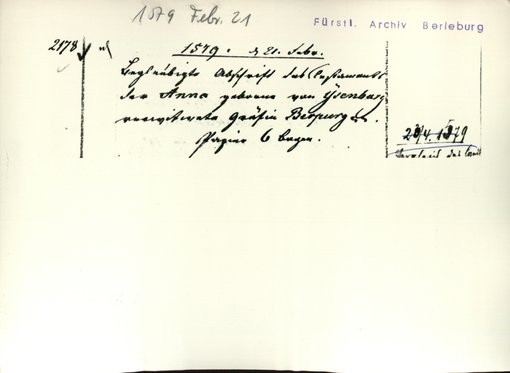 1579 Febr. 21
Fürstl. Archiv Berleburg
2178
1579. d 21. Febr.
Beglaubigte Abschrift des Testaments
der Anna geborene von Ysenburg
verwitwete Gräfin
Papier 6 Bogen.
1579
Vergleich des